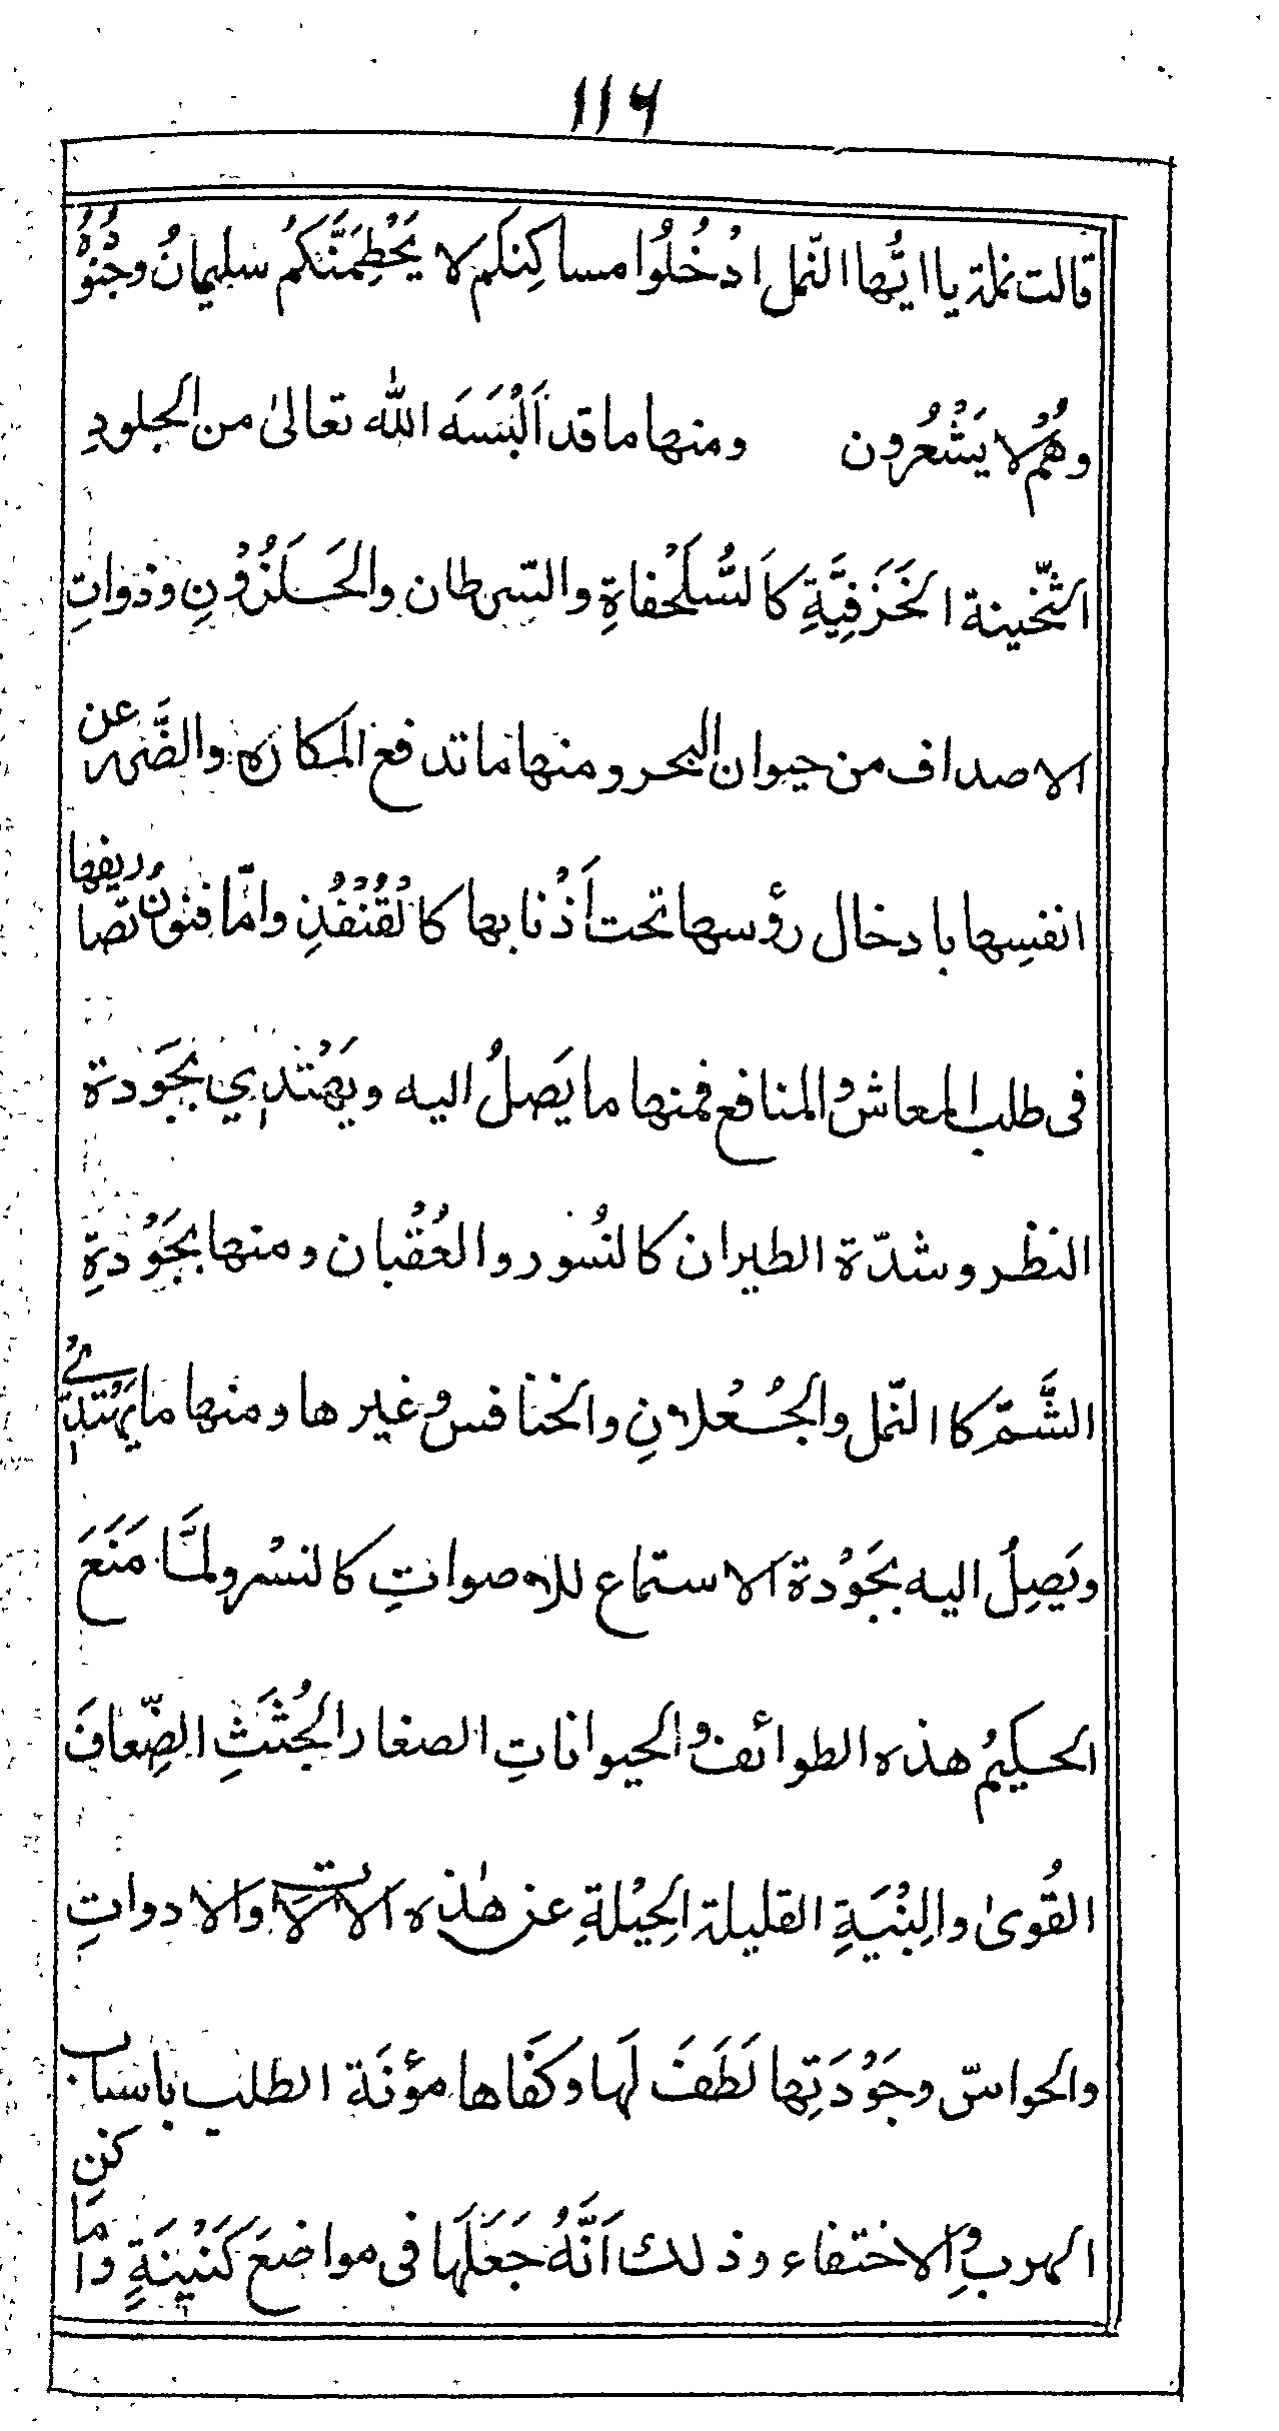 ۱۱۶
قالت نملة يا ايُّها النّمل ادْخُلُوا مساكِنكَم لا يَحْطِمَنَّكمُ سليمانُ وجُنُودُهُ
وهُمْ لا يَشْعُرُون ومنها ما قد اَلْبَسَهَ الله تعالىٰ من الجلودِ
الثّخينة الخَزَفِيَّةِ كاَلسُّلَحْفاةِ والسّرطان والحَلَزُوْنِ وذواتِ
الاصداف من حيوان البحر ومنها ما تدفع المكاره والضَّرر عن
انفسِها بادخال رؤسها تحت اَذْنابها كالْقُنْفُذِ وامّا فنونُ تصاريفها
فى طلب المعاش والمنافع فمنها ما يَصلُ اليه ويَهْتدِي بجَودة
النظر وشدّة الطيران كالنُسُور والعُقْبان ومنها بجَوْدةِ
الشَّمّ كا النّمل والجُعُلانِ والخنافس وغيرها ومنها ما يهْتدِيُ
ويَصِلُ اليه بجَوْدة الاستماع للاصواتِ كالنسْر ولمَّا مَنَعَ
الحكيمُ هذه الطوائف والحيواناتِ الصغار الجُثَثِ الضِّعافَ
القُوىٰ والبِنْيَةِ القليلة الحِيْلةِ عن هٰذه الالات والادواتِ
والحواسّ وجَوْدَتِها لَطَفَ لَها وكَفَاها مؤنَة الطلب باسباب
الهربِ والاختفاء وذلك اَنَّهُ جَعَلَها فى مواضعَ كَنِيْنَةٍ واماكن